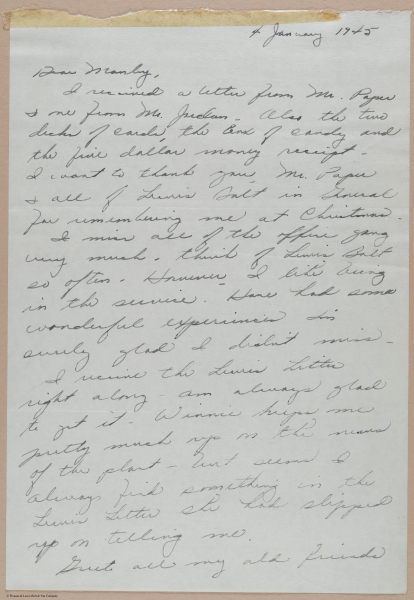 4 January 1945
Dear Manley,
I received a letter from Mr. Paper
& one from Mr. Jordan. Also the two
decks of cards, the box of candy and
the five dollar money receipt.
I want to thank you, Mr. Paper
& all of Lewis Bolt in General
for remembering me at Christmas.
I miss all of the office gang
very much. think of Lewis Bolt
so often. However I like being
in the service. Have had some
wonderful experiences I'm
surely glad I didn't miss.
I receive the Lewis Letter
right along - am always glad
to get it. Winnie keeps me
pretty much up on the news
of the plant - but seems I
always find something in the
Lewis Letter she had slipped
up on telling me.
Greet all my old friends